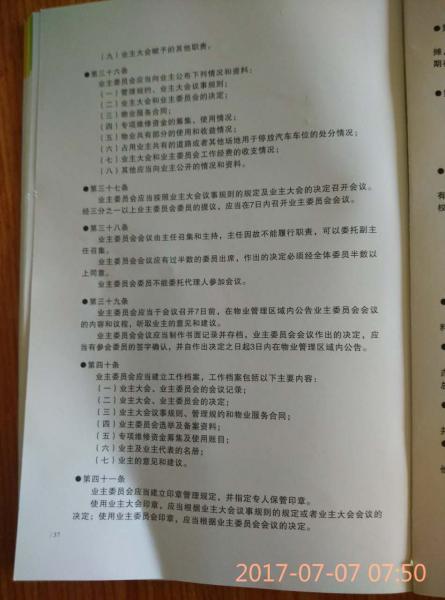 （九）业主大会赋予的其他职责。
●第三十六条
业主委员会应当向业主公布下列情况和资料：
（一）管理规约、业主大会议事规则；
（二）业主大会和业主委员会的决定；
（三）物业服务合同；
（四）专项维修资金的筹集、使用情况；
（五）物业共有部分的使用和收益情况；
（六）占用业主共有的道路或者其他场地用于停放汽车车位的处分情况；
（七）业主大会和业主委员会工作经费的收支情况；
（八）其他应当向业主公开的情况和资料。
●第三十七条
业主委员会应当按照业主大会议事规则的规定及业主大会的决定召开会议。
经三分之一以上业主委员会委员的提议，应当在7日内召开业主委员会会议。
●第三十八条
业主委员会会议由主任召集和主持，主任因故不能履行职责，可以委托副主
任召集。
业主委员会会议应有过半数的委员出席，作出的决定必须经全体委员半数以
上同意。
业主委员会委员不能委托代理人参加会议。
●第三十九条
业主委员会应当于会议召开7日前，在物业管理区域内公告业主委员会会议
的内容和议程，听取业主的意见和建议。
业主委员会会议应当制作书面记录并存档，业主委员会会议作出的决定，应
当有参会委员的签字确认，并自作出决定之日起3日内在物业管理区域内公告。
●第四十条
业主委员会应当建立工作档案，工作档案包括以下主要内容：
（一）业主大会、业主委员会的会议记录；
（二）业主大会、业主委员会的决定；
（三）业主大会议事规则、管理规约和物业服务合同；
（四）业主委员会选举及备案资料；
（五）专项维修资金筹集及使用账目；
（六）业主及业主代表的名册；
（七）业主的意见和建议。
●第四十一条
业主委员会应当建立印章管理规定，并指定专人保管印章。
使用业主大会印章，应当根据业主大会议事规则的规定或者业主大会会议的
决定；使用业主委员会印章，应当根据业主委员会会议的决定。
/37
2017-07-07 07:50